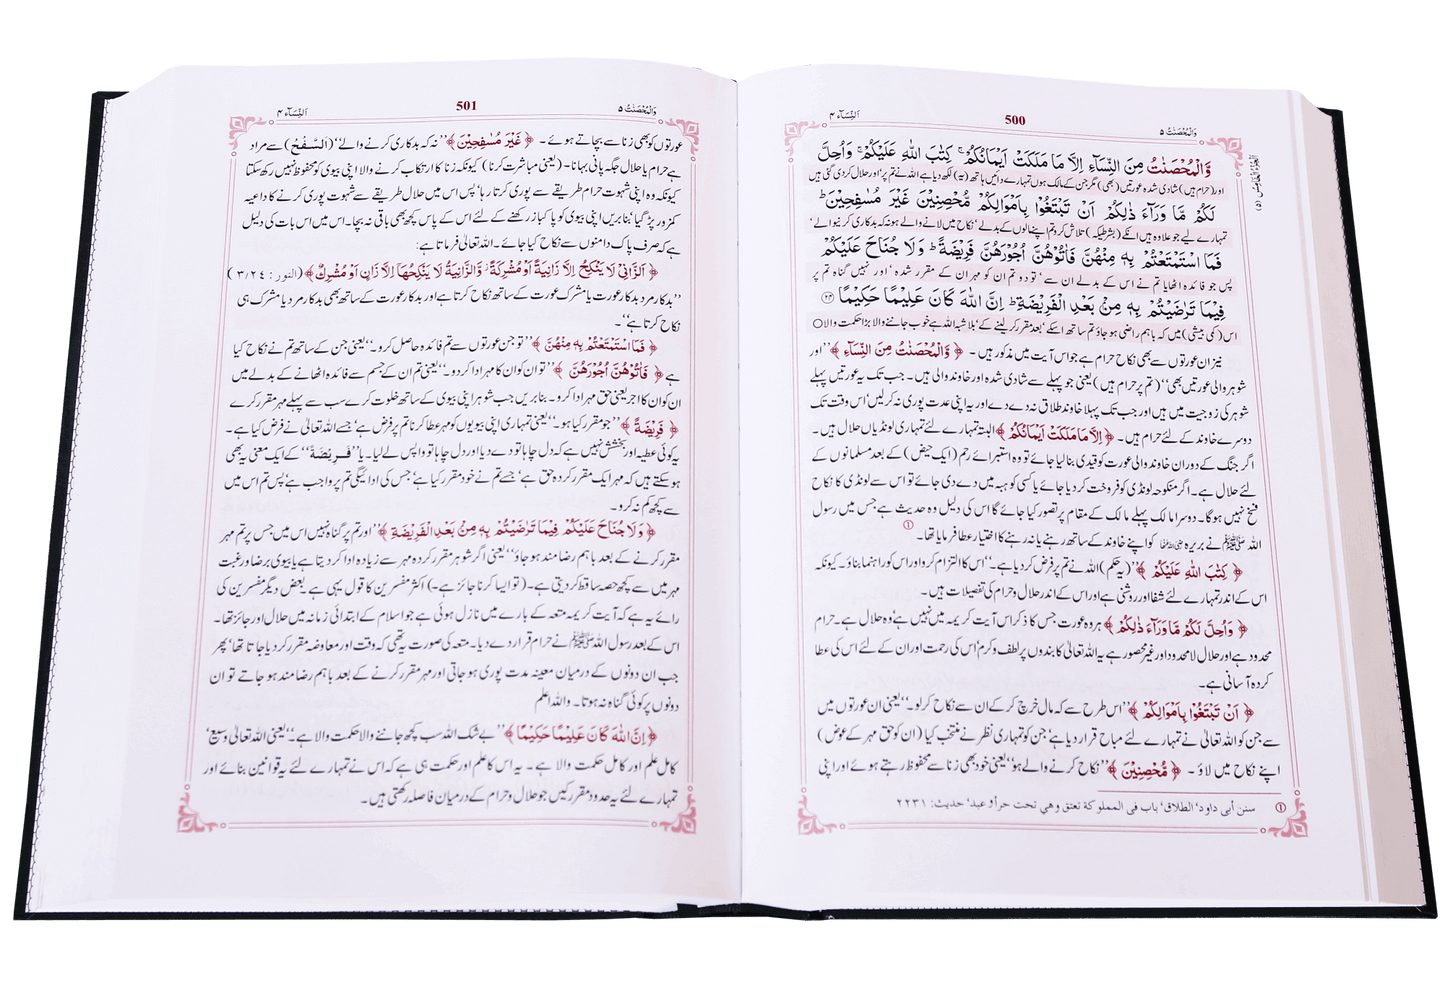 اَلنِّسَآء ۴
500
وَالْمُحْصَنٰتُ ۵
وَّالْمُحْصَنٰتُ مِنَ النِّسَآءِ اِلَّا مَا مَلَكَتْ اَيْمَانُكُمْ ۚ كِتٰبَ اللّٰهِ عَلَيْكُمْ ۚ وَاُحِلَّ
اور (حرام ہیں) شادی شدہ عورتیں (بھی) مگر جن کے مالک ہوں تمہارے دائیں ہاتھ (یہ) لکھ دیا ہے اللہ نے تم پر‘ اور حلال کر دی گئی ہیں
لَكُمْ مَّا وَرَآءَ ذٰلِكُمْ اَنْ تَبْتَغُوْا بِاَمْوَالِكُمْ مُّحْصِنِيْنَ غَيْرَ مُسٰفِحِيْنَ ؕ
تمہارے لیے جو علاوہ ہیں انکے (بشرطیکہ) تلاش کرو تم اپنے مالوں کے بدلے‘ نکاح میں لانے والے ہو نہ کہ بدکاری کرنیوالے‘
فَمَا اسْتَمْتَعْتُمْ بِهٖ مِنْهُنَّ فَاٰتُوْهُنَّ اُجُوْرَهُنَّ فَرِيْضَةً ؕ وَلَا جُنَاحَ عَلَيْكُمْ
پس جو فائدہ اٹھایا تم نے اس کے بدلے ان سے‘ تو دو تم ان کو مہر ان کے مقرر شدہ‘ اور نہیں گناہ تم پر
فِيْمَا تَرٰضَيْتُمْ بِهٖ مِنْۢ بَعْدِ الْفَرِيْضَةِ ؕ اِنَّ اللّٰهَ كَانَ عَلِيْمًا حَكِيْمًا ۲۴
اس (کمی بیشی) میں کہ باہم راضی ہو جاؤ تم ساتھ اسکے‘ بعد مقرر کر لینے کے‘ بلاشبہ اللہ ہے خوب جاننے والا بڑا حکمت والا○
نیز ان عورتوں سے بھی نکاح حرام ہے جو اس آیت میں مذکور ہیں۔ ﴿ وَّالْمُحْصَنٰتُ مِنَ النِّسَآءِ ﴾ ’’اور
شوہر والی عورتیں بھی‘‘ (تم پر حرام ہیں) یعنی جو پہلے سے شادی شدہ اور خاوند والی ہیں۔ جب تک یہ عورتیں پہلے
شوہر کی زوجیت میں ہیں اور جب تک پہلا خاوند طلاق نہ دے دے اور یہ اپنی عدت پوری نہ کر لیں‘ اس وقت تک
دوسرے خاوند کے لئے حرام ہیں۔ ﴿ اِلَّا مَا مَلَكَتْ اَيْمَانُكُمْ ﴾ البتہ تمہارے لئے تمہاری لونڈیاں حلال ہیں۔
اگر جنگ کے دوران خاوند والی عورت کو قیدی بنا لیا جائے تو وہ استبرائے رحم (ایک حیض) کے بعد مسلمانوں کے
لئے حلال ہے۔ اگر منکوحہ لونڈی کو فروخت کر دیا جائے یا کسی کو ہبہ میں دے دی جائے تو اس سے لونڈی کا نکاح
فسخ نہیں ہوگا۔ دوسرا مالک پہلے مالک کے مقام پر تصور کیا جائے گا اس کی دلیل وہ حدیث ہے جس میں رسول
اللہ ﷺ نے بریرہ رضی اللہ عنہا کو اپنے خاوند کے ساتھ رہنے یا نہ رہنے کا اختیار عطا فرمایا تھا۔ ①
﴿ كِتٰبَ اللّٰهِ عَلَيْكُمْ ﴾ ’’(یہ حکم) اللہ نے تم پر فرض کر دیا ہے۔‘‘ اس کا التزام کرو اور اس کو راہنما بناؤ۔ کیونکہ
اس کے اندر تمہارے لئے شفا اور روشنی ہے اور اس کے اندر حلال و حرام کی تفصیلات ہیں۔
﴿ وَاُحِلَّ لَكُمْ مَّا وَرَآءَ ذٰلِكُمْ ﴾ ہر وہ عورت جس کا ذکر اس آیت کریمہ میں نہیں ہے‘ وہ حلال ہے۔ حرام
محدود ہے اور حلال لامحدود اور غیر محصور ہے یہ اللہ تعالیٰ کا بندوں پر لطف و کرم‘ اس کی رحمت اور ان کے لئے اس کی عطا
کردہ آسانی ہے۔
﴿ اَنْ تَبْتَغُوْا بِاَمْوَالِكُمْ ﴾ ’’اس طرح سے کہ مال خرچ کر کے ان سے نکاح کر لو۔‘‘ یعنی ان عورتوں میں
سے جن کو اللہ تعالیٰ نے تمہارے لئے مباح قرار دیا ہے‘ جن کو تمہاری نظر نے منتخب کیا (ان کو حق مہر کے عوض)
اپنے نکاح میں لاؤ۔ ﴿ مُّحْصِنِيْنَ ﴾ ’’نکاح کرنے والے ہو‘‘ یعنی خود بھی زنا سے محفوظ رہتے ہوئے اور اپنی
① سنن أبی داود‘ الطلاق‘ باب فی المملوکة تعتق وهي تحت حر أو عبد‘ حدیث: ۲۲۳۱
اَلنِّسَآء ۴
501
وَالْمُحْصَنٰتُ ۵
عورتوں کو بھی زنا سے بچاتے ہوئے۔ ﴿ غَيْرَ مُسٰفِحِيْنَ ﴾ ’’نہ کہ بدکاری کرنے والے‘‘ (اَلسَّفْحُ) سے مراد
ہے حرام یا حلال جگہ پانی بہانا۔ (یعنی مباشرت کرنا) کیونکہ زنا کا ارتکاب کرنے والا اپنی بیوی کو محفوظ نہیں رکھ سکتا
کیونکہ وہ اپنی شہوت حرام طریقے سے پوری کرتا رہا‘ پس اس میں حلال طریقے سے شہوت پوری کرنے کا داعیہ
کمزور پڑ گیا‘ بنابریں اپنی بیوی کو پاکباز رکھنے کے لئے اس کے پاس کچھ بھی باقی نہ بچا۔ اس میں اس بات کی دلیل
ہے کہ صرف پاک دامنوں سے نکاح کیا جائے۔ اللہ تعالیٰ فرماتا ہے:
﴿ اَلزَّانِيْ لَا يَنْكِحُ اِلَّا زَانِيَةً اَوْ مُشْرِكَةً وَّالزَّانِيَةُ لَا يَنْكِحُهَا اِلَّا زَانٍ اَوْ مُشْرِكٌ ﴾ (النور: ۳/۲۴)
’’بدکار مرد بدکار عورت یا مشرک عورت کے ساتھ نکاح کرتا ہے اور بدکار عورت کے ساتھ بھی بدکار مرد یا مشرک ہی
نکاح کرتا ہے‘‘۔
﴿ فَمَا اسْتَمْتَعْتُمْ بِهٖ مِنْهُنَّ ﴾ ’’تو جن عورتوں سے تم فائدہ حاصل کرو۔‘‘ یعنی جن کے ساتھ تم نے نکاح کیا
ہے ﴿ فَاٰتُوْهُنَّ اُجُوْرَهُنَّ ﴾ ’’تو ان کو ان کا مہر ادا کر دو۔‘‘ یعنی تم ان کے جسم سے فائدہ اٹھانے کے بدلے میں
ان کو ان کا اجر یعنی حق مہر ادا کرو۔ بنابریں جب شوہر اپنی بیوی کے ساتھ خلوت کرے سب سے پہلے مہر مقرر کرے
﴿ فَرِيْضَةً ﴾ ’’جو مقرر کیا ہو۔‘‘ یعنی تمہاری اپنی بیویوں کو مہر عطا کرنا تم پر فرض ہے‘ جسے اللہ تعالیٰ نے فرض کیا ہے۔
یہ کوئی عطیہ اور بخشش نہیں ہے کہ دل چاہا تو دے دیا اور دل چاہا تو واپس لے لیا۔ یا ’’فَرِيْضَةً‘‘ کے ایک معنی یہ بھی
ہو سکتے ہیں کہ مہر ایک مقرر کردہ حق ہے‘ جسے تم نے خود مقرر کیا ہے‘ جس کی ادائیگی تم پر واجب ہے‘ پس تم اس میں
سے کچھ کم نہ کرو۔
﴿ وَلَا جُنَاحَ عَلَيْكُمْ فِيْمَا تَرٰضَيْتُمْ بِهٖ مِنْۢ بَعْدِ الْفَرِيْضَةِ ﴾ ’’اور تم پر گناہ نہیں اس میں جس پر تم مہر
مقرر کرنے کے بعد باہم رضامند ہو جاؤ‘‘ یعنی اگر شوہر مقرر کردہ مہر سے زیادہ ادا کر دیتا ہے یا بیوی برضا و رغبت
مہر میں سے کچھ حصہ ساقط کر دیتی ہے۔ (تو ایسا کرنا جائز ہے۔) اکثر مفسرین کا قول یہی ہے بعض دیگر مفسرین کی
رائے یہ ہے کہ آیت کریمہ متعہ کے بارے میں نازل ہوئی ہے جو اسلام کے ابتدائی زمانہ میں حلال اور جائز تھا۔
اس کے بعد رسول اللہ ﷺ نے حرام قرار دے دیا۔ متعہ کی صورت یہ تھی کہ وقت اور معاوضہ مقرر کر دیا جاتا تھا‘ پھر
جب ان دونوں کے درمیان معینہ مدت پوری ہو جاتی اور مہر مقرر کرنے کے بعد باہم رضا مند ہو جاتے تو ان
دونوں پر کوئی گناہ نہ ہوتا۔ واللہ اعلم
﴿ اِنَّ اللّٰهَ كَانَ عَلِيْمًا حَكِيْمًا ﴾ ’’بے شک اللہ سب کچھ جاننے والا حکمت والا ہے۔‘‘ یعنی اللہ تعالیٰ وسیع‘
کامل علم اور کامل حکمت والا ہے۔ یہ اس کا علم اور حکمت ہی ہے کہ اس نے تمہارے لئے یہ قوانین بنائے اور
تمہارے لئے یہ حدود مقرر کیں جو حلال و حرام کے درمیان فاصلہ رکھتی ہیں۔